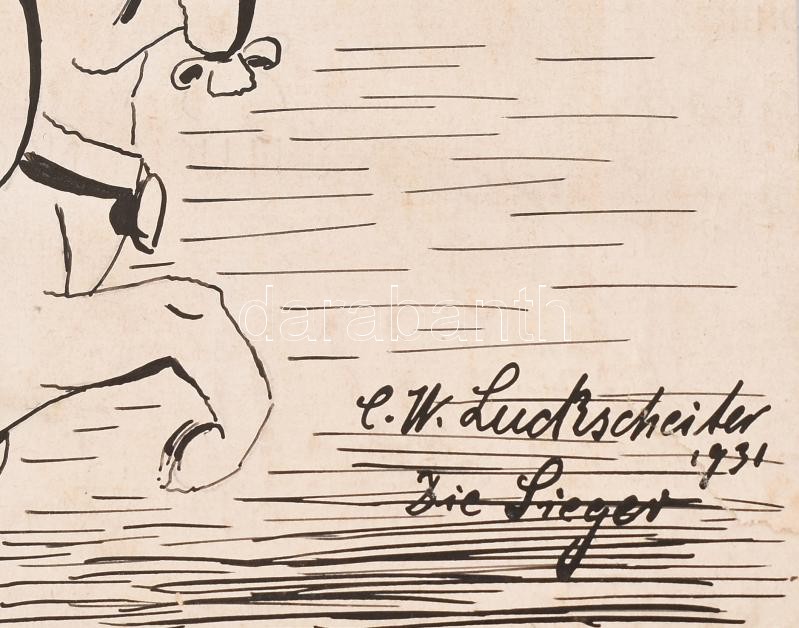 darabanth
C. W. Luckscheiter
1931
Die Sieger